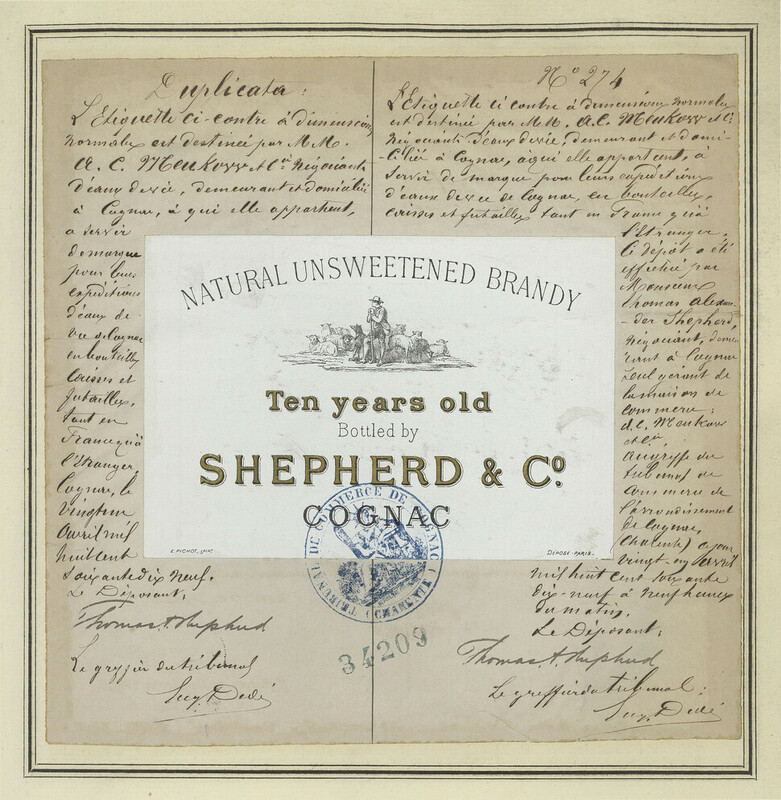 Duplicata :
L'Etiquette ci-contre à dimensions
normales est destinée par M.M.
A. C. Meukow et Cie Négociants
d'eaux de vie, demeurant et domiciliés
à Cognac, à qui elle appartient,
à servir
de marque
pour leurs
expéditions
d'eaux de
vie de Cognac
en bouteilles
caisses et
futailles,
tant en
France qu'à
l'Etranger.
Cognac, le
vingt un
Avril mil
huit cent
soixante dix neuf.
Le Déposant,
Thomas A Shepherd
Le greffier du tribunal
No 274
L'Etiquette ci contre à dimensions normales
est destinée par M.M. A.C. Meukow et Cie
Négociants d'eaux de vie, demeurant et domi-
-ciliés à Cognac, à qui elle appartient, à
servir de marque pour leurs expéditions
d'eaux de vie de Cognac, en bouteilles,
caisses et futailles tant en France qu'à
l'Etranger.
Ce dépôt a été
effectué par
Monsieur
Thomas Alexan-
-der Shepherd,
négociant, demeu-
rant à Cognac
seul gérant de
la maison de
commerce :
A.C. Meukow
et Cie
au greffe du
tribunal de
commerce de
l'arrondissement
de Cognac,
(Charente) ce jour
vingt-un Avril
mil huit cent soixante
dix-neuf à neuf heures
du matin.
Le Déposant,
Thomas A. Shepherd
Le greffier du tribunal :
NATURAL UNSWEETENED BRANDY
Ten years old
Bottled by
SHEPHERD & Co
COGNAC
E. PICHOT, IMP.
DÉPOSÉ-PARIS.
TRIBUNAL DE COMMERCE DE COGNAC (CHARENTE)
34209